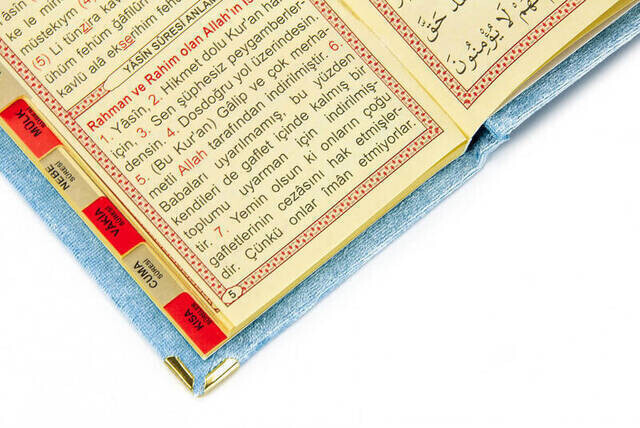 müstekıym
(5) Li tünzira
ühüm fehüm gâfilûn
kavlü alâ ekserihim fehüm
YÂSİN SÛRESİ ANLAMI
Rahman ve Rahim olan Allah'ın
1. Yâsîn, 2. Hikmet dolu Kur'an hak-
için, 3. Sen şüphesiz peygamberler-
densin. 4. Dosdoğru yol üzerindesin.
5. (Bu Kur'an) Gâlip ve çok merha-
metli Allah tarafından indirilmiştir. 6.
Babaları uyarılmamış, bu yüzden
kendileri de gaflet içinde kalmış bir
toplumu uyarman için indirilmiş-
tir. 7. Yemin olsun ki onların çoğu
gafletlerinin cezâsını hak etmişler-
dir. Çünkü onlar îmân etmiyorlar.
5
MÜLK
SÛRESİ
NEBE
SÛRESİ
VAKIA
SÛRESİ
CUMA
SÛRESİ
KISA
SÛRELER
حَقَّ
لَا يُؤْمِنُونَ